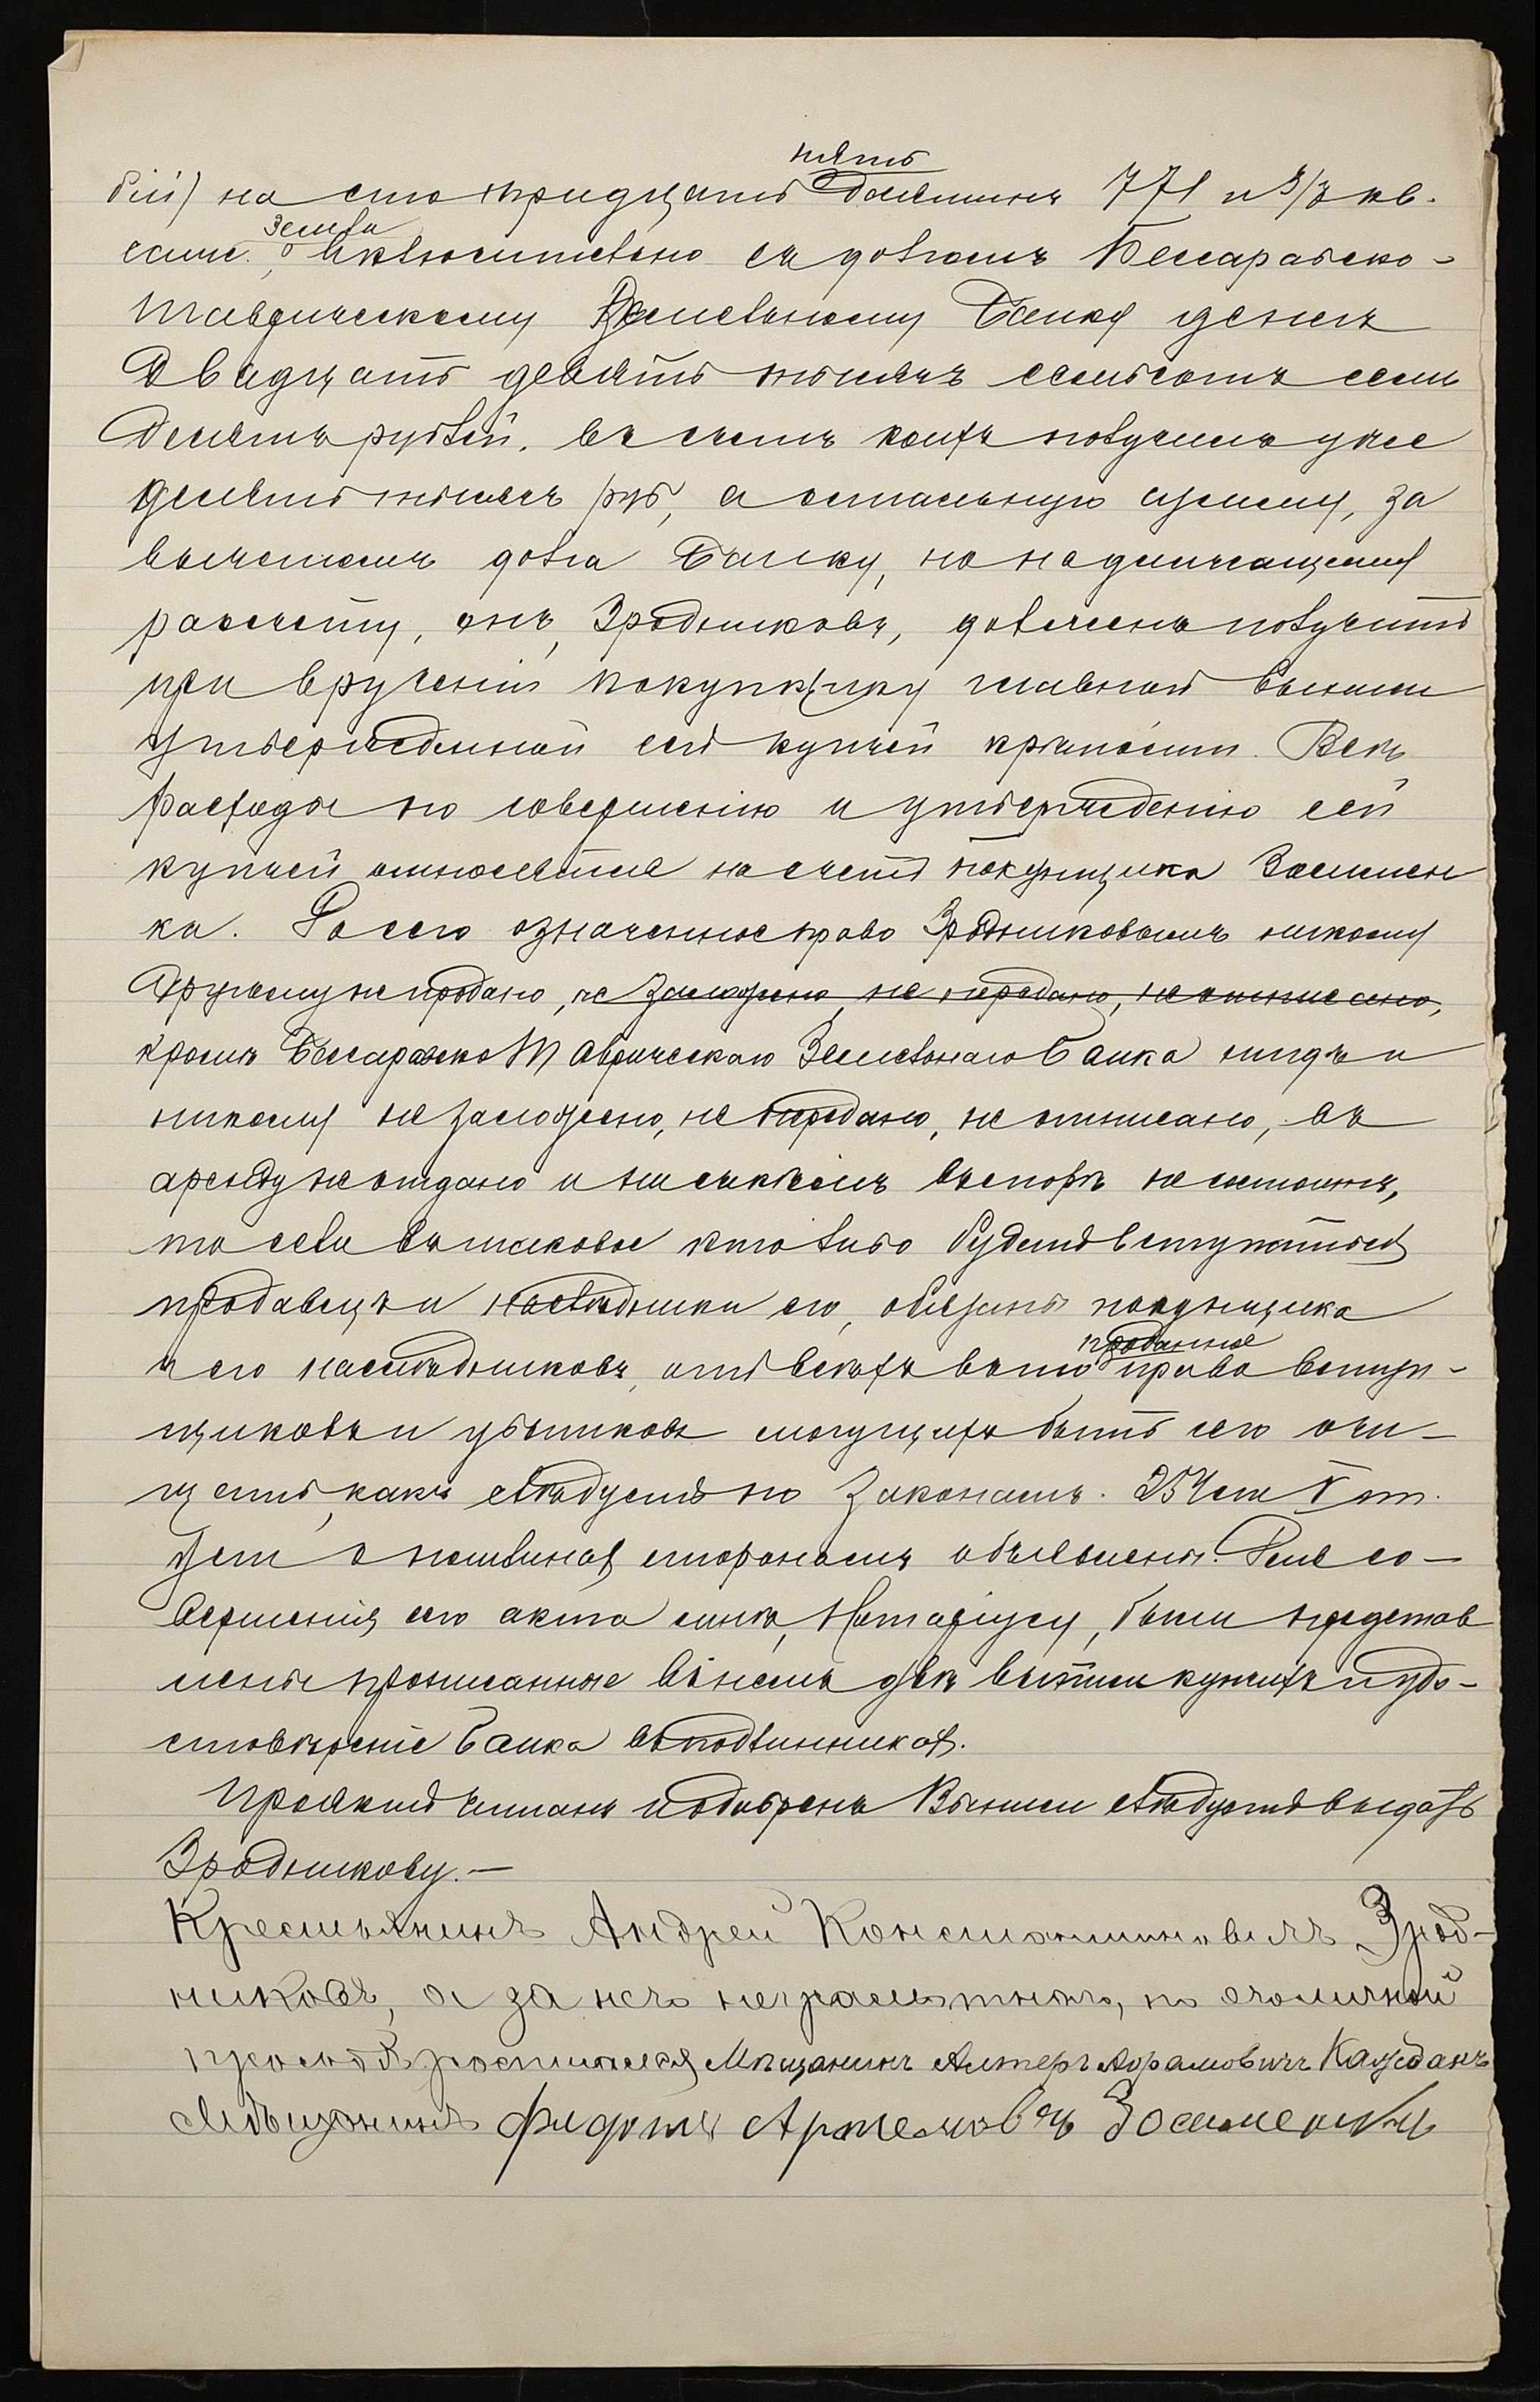 бій) на сто тридцать пять десятинъ 771 и 3/3 кв.
саже. земли, включительно съ долгомъ Бессарабско-
Таврическому Земельному Банку ценою
Двадцать девять тысячъ семьсотъ семь
десятъ рублей. въ счетъ коихъ получилъ уже
десять тысячъ руб, а остальную сумму, за
вычетомъ долга Банку, по надлежащему
разсчету, онъ, Зродниковъ, долженъ получить
при врученіи покупщику главной выписи
утвержденной сей купчей крѣпости. Всѣ
расходы по совершенію и утвержденію сей
купчей относятся на счетъ покупщика Зосимен
ка. До сего означенное право Зродниковымъ никому
другому не продано, не заложено, не передано, не отписано,
кромѣ Бессарабско Таврическаго Земельнаго Банка нигдѣ и
никому не заложено, не передано, не отписано, въ
аренду не отдано и ни съ кѣмъ въ спорѣ не состоитъ,
то если въ таковое кто либо будетъ вступаться
продавецъ и наслѣдники его, обязаны покупщика
и его наслѣдниковъ, отъ всѣхъ въ то проданное право вступ-
щиковъ и убытковъ могущихъ быть его очи-
щать, какъ слѣдуетъ по законамъ. 254 ст X т.
Уст о пошлинах сторонамъ объявлены. Для со-
вершенія сего акта мнѣ, Нотаріусу, были представ
лены прописанные въ немъ двѣ выписи купчихъ и удо-
стовѣреніе Банка въ подлинниках.
Проектъ читанъ и одобренъ Выписи слѣдуетъ выдать
Зродникову.—
Крестьянинъ Андрей Константиновичъ Зрод-
никовъ, а за негъ неграмотнаго, по его личной
просьбѣ росписался Мѣщанинъ Алтеръ Абрамовичъ Каждакъ
Мѣщанинъ Федотъ Артемовъ Зосименко